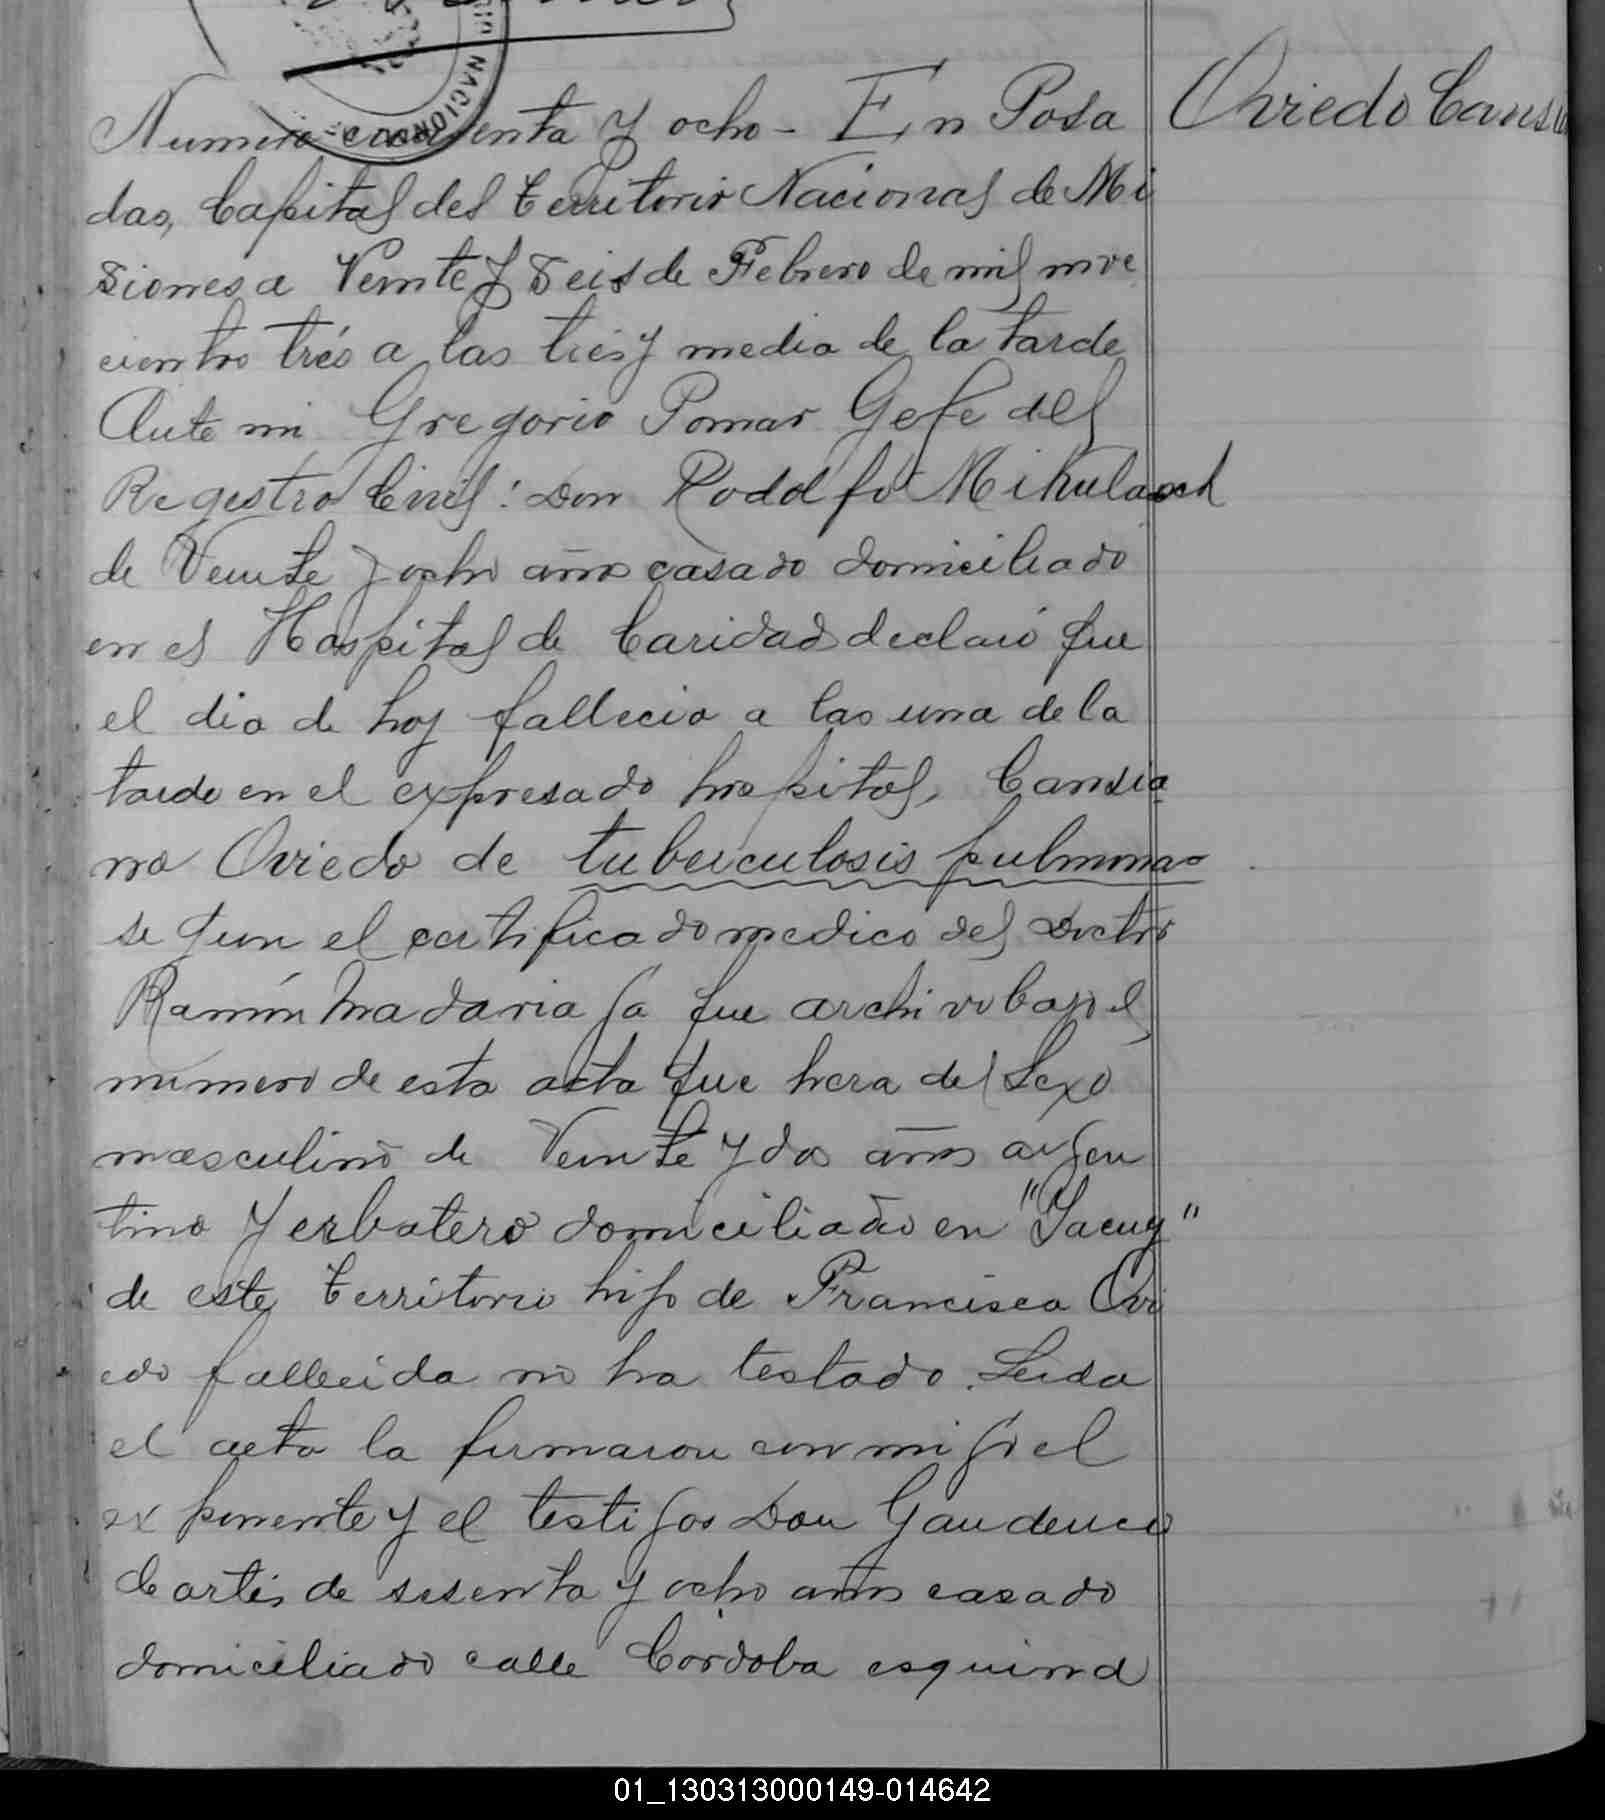 Numero cuarenta y ocho - En Posa
Oviedo Cans
das, Capital del Territorio Nacional de Mi
siones a Veinte y Seis de Febrero de mil nove
cientos trés a las tres y media de la tarde
Ante mi Gregorio Pomar Gefe del
Registro Civil: Don Rodolfo Mikulasch
de Veinte y ocho años casado domiciliado
en el Hospital de Caridad declaró que
el dia de hoy fallecio a las una de la
tarde en el expresado hospital, Cansia
no Oviedo de tuberculosis pulmonar
segun el certificado medico del Doctor
Ramón Madariaga que archivo bajo el
numero de esta acta que hera del Sexo
masculino de Veinte y dos años argen
tino Yerbatero domiciliado en "Yacuy"
de este Territorio hijo de Francisca Ovi
edo fallecida no ha testado. Leida
el acta la firmaron conmigo el
exponente y el testigos Don Gaudencio
Cortés de sesenta y ocho años casado
domiciliado calle Córdoba esquina
NACIONAL
01_130313000149-014642